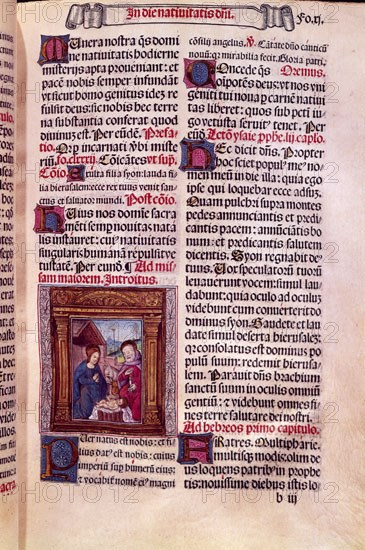 In die nativitatis dñi.
Fo.xj.
Munera nostra q̃s domi
ne nativitatis hodierne
misterijs apta proveniant: et
pacē nobis semper infundāt
vt sicut homo genitus idez re
fulsit deus: sic nobis hec terre
na substantia conferat quod
diuinuz est. Per eūdē. Prefa-
tio. Q̃z per incarnati vbi misteri
Cōio.
Exulta filia syon: lauda fi
lia hierusalem: ecce rex tuus venit san-
ctus et saluator mundi. Postcōio.
Huius nos domīe sacra
mēti semp nouitas nata
lis instauret: cui' natiuitatis
singularis humanā repulit ve
tustatē. Per eundē. Ad mis
sam maiorem. Introitus.
Puer natus est nobis: et fi
lius dat' est nobis: cuius
imperiū sup humerū eius:
et vocabit' nomē ei' magni
cōsilij angelus. V. Cātate dño canticū
nouū: q̃z mirabilia fecit. Gloria patri.
Oremus.
Concede q̃s
oīpotēs deus: vt nos vni
geniti tui noua p carnē natiui
tas liberet: quos sub pcti iu-
go vetusta seruit' tenet. Per
eūdē
Hec dicit dñs. Propter
hoc sciet populus me' no-
men meū in die illa: quia ego
ipse qui loquebar ecce adsuz.
Quam pulchri supra montes
pedes annunciantis et predi-
cantis pacem: annūciātis bo-
num: et predicantis salutem
dicentis: Syon regnabit de'
tuus. Vox speculatorū tuorū
leuauerunt vocem: simul lau
dabunt: quia oculo ad oculuz
videbunt cum conuerterit do
minus syon. Gaudete et lau
date simul deserta hierusalez:
q̃z consolatus est dominus po
pulū suum: redemit hierusa-
lem. Parauit dñs brachium
sanctū suum in oculis omniū
gentiū: et videbunt omnes fi-
nes terre salutare dei nostri.
Ad hebreos primo capitulo.
Fratres. Multipharie.
multisq̃z modis olim de
us loquens patrib' in prophe
tis: nouissime diebus istis lo
b iij